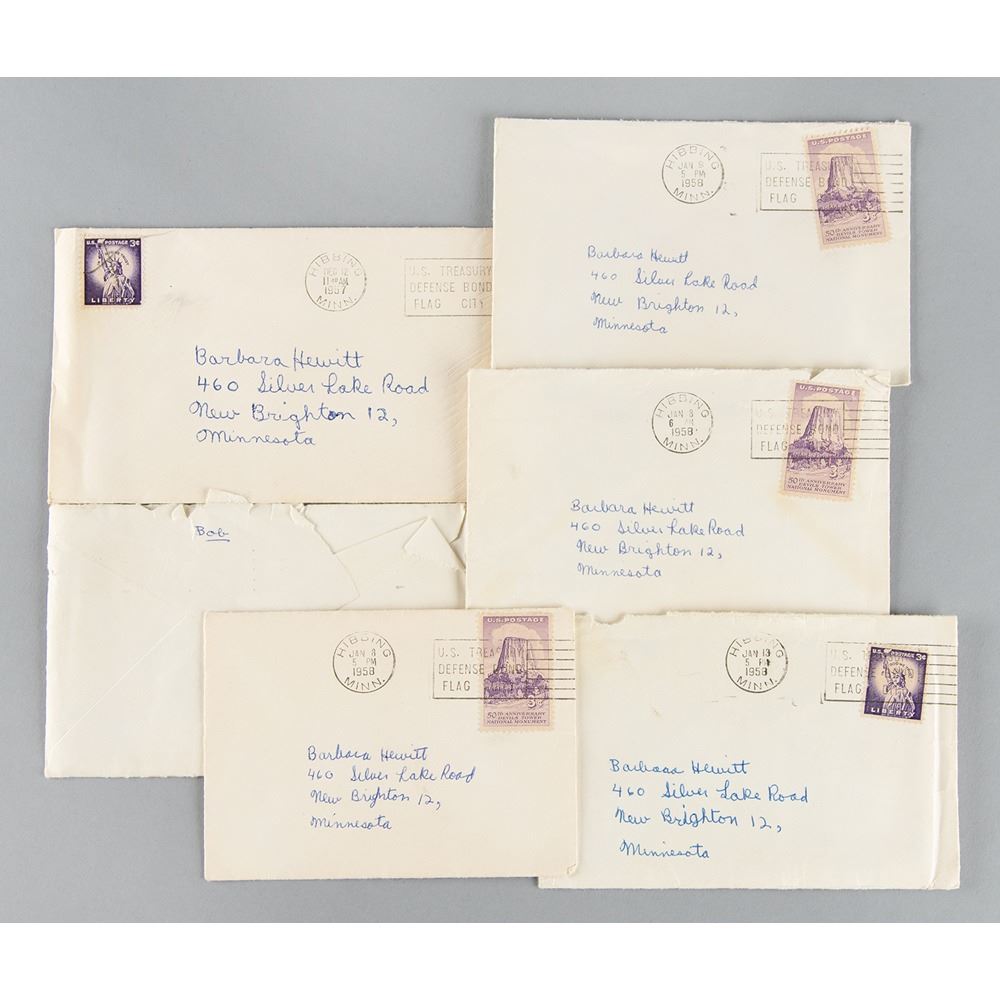 U.S. POSTAGE 3¢
LIBERTY
HIBBING
DEC 12
11 AM
1957
MINN.
U.S. TREASURY
DEFENSE BOND
FLAG CITY
Barbara Hewitt
460 Silver Lake Road
New Brighton 12,
Minnesota
Bob
HIBBING
JAN 9
5 PM
1958
MINN.
U.S. TREAS
DEFENSE BOND
FLAG
U.S. POSTAGE
3¢
50TH ANNIVERSARY
DEVILS TOWER
NATIONAL MONUMENT
Barbara Hewitt
460 Silver Lake Road
New Brighton 12,
Minnesota
HIBBING
JAN 8
6
1958
MINN.
DEFENSE BOND
FLAG
U.S. POSTAGE
3¢
50TH ANNIVERSARY
DEVILS TOWER
NATIONAL MONUMENT
Barbara Hewitt
460 Silver Lake Road
New Brighton 12,
Minnesota
HIBBING
JAN 8
5 PM
1958
MINN.
U.S. TREASURY
DEFENSE BOND
FLAG
U.S. POSTAGE
3¢
50TH ANNIVERSARY
DEVILS TOWER
NATIONAL MONUMENT
Barbara Hewitt
460 Silver Lake Road
New Brighton 12,
Minnesota
HIBBING
JAN 13
5 PM
1958
MINN.
U.S. T
DEFENSE
FLAG
U.S. POSTAGE 3¢
LIBERTY
Barbara Hewitt
460 Silver Lake Road
New Brighton 12,
Minnesota